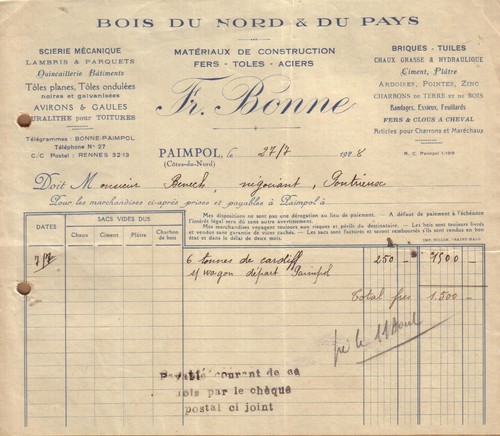 BOIS DU NORD & DU PAYS
SCIERIE MÉCANIQUE
LAMBRIS & PARQUETS
Quincaillerie Bâtiments
Tôles planes, Tôles ondulées
noires et galvanisées
AVIRONS & GAULES
MURALITHE pour TOITURES
Télégrammes : BONNE-PAIMPOL
Téléphone N° 27
C/C Postal : RENNES 32-13
MATÉRIAUX DE CONSTRUCTION
FERS - TOLES - ACIERS
Fr. Bonne
BRIQUES - TUILES
CHAUX GRASSE & HYDRAULIQUE
Ciment, Plâtre
ARDOISES, POINTES, ZINC
CHARBONS DE TERRE ET DE BOIS
Bandages, Essieux, Feuillards
FERS & CLOUS A CHEVAL
Articles pour Charrons et Maréchaux
R. C. Paimpol 1.199
PAIMPOL, le 27/7 1928
(Côtes-du-Nord)
Doit Monsieur Benech, négociant, Pontrieux
Pour les marchandises ci-après prises et payables à Paimpol à
Mes dispositions ne sont pas une dérogation au lieu de paiement. - A défaut de paiement à l'échéance
l'intérêt sera dû de plein droit.
Mes marchandises voyagent toujours aux risques et périls du destinataire. - Les bois sont toujours livrés
et vendus sans garantie de vices cachés. - Les sacs sont facturés et seront remboursés s'ils sont rendus en bon
état et dans le délai de deux mois.
DATES
SACS VIDES DUS
Chaux
Ciment
Plâtre
Charbon de bois
7/7 6 tonnes de cardiff 250 - 1500 -
s/ wagon départ Paimpol
Total frcs 1.500 -
payable courant de ce
mois par le chèque
postal ci joint